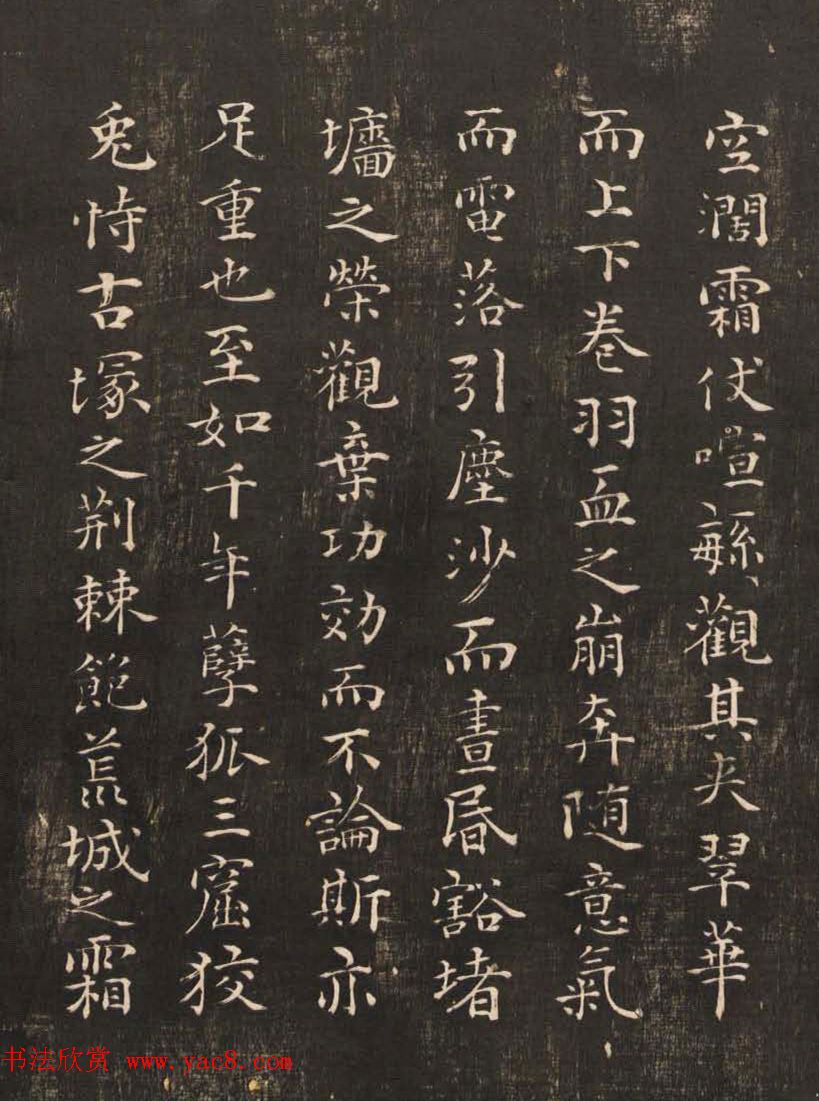 空濶霜仗喧繇觀其夾翠華
而上下卷羽血之崩奔随意氣
而雷落引塵沙而晝昬豁堵
墻之榮觀棄功効而不論斯亦
足重也至如千年孽狐三窟狡
兔恃古塚之荆棘飽荒城之霜
书法欣赏 www.yac8.com